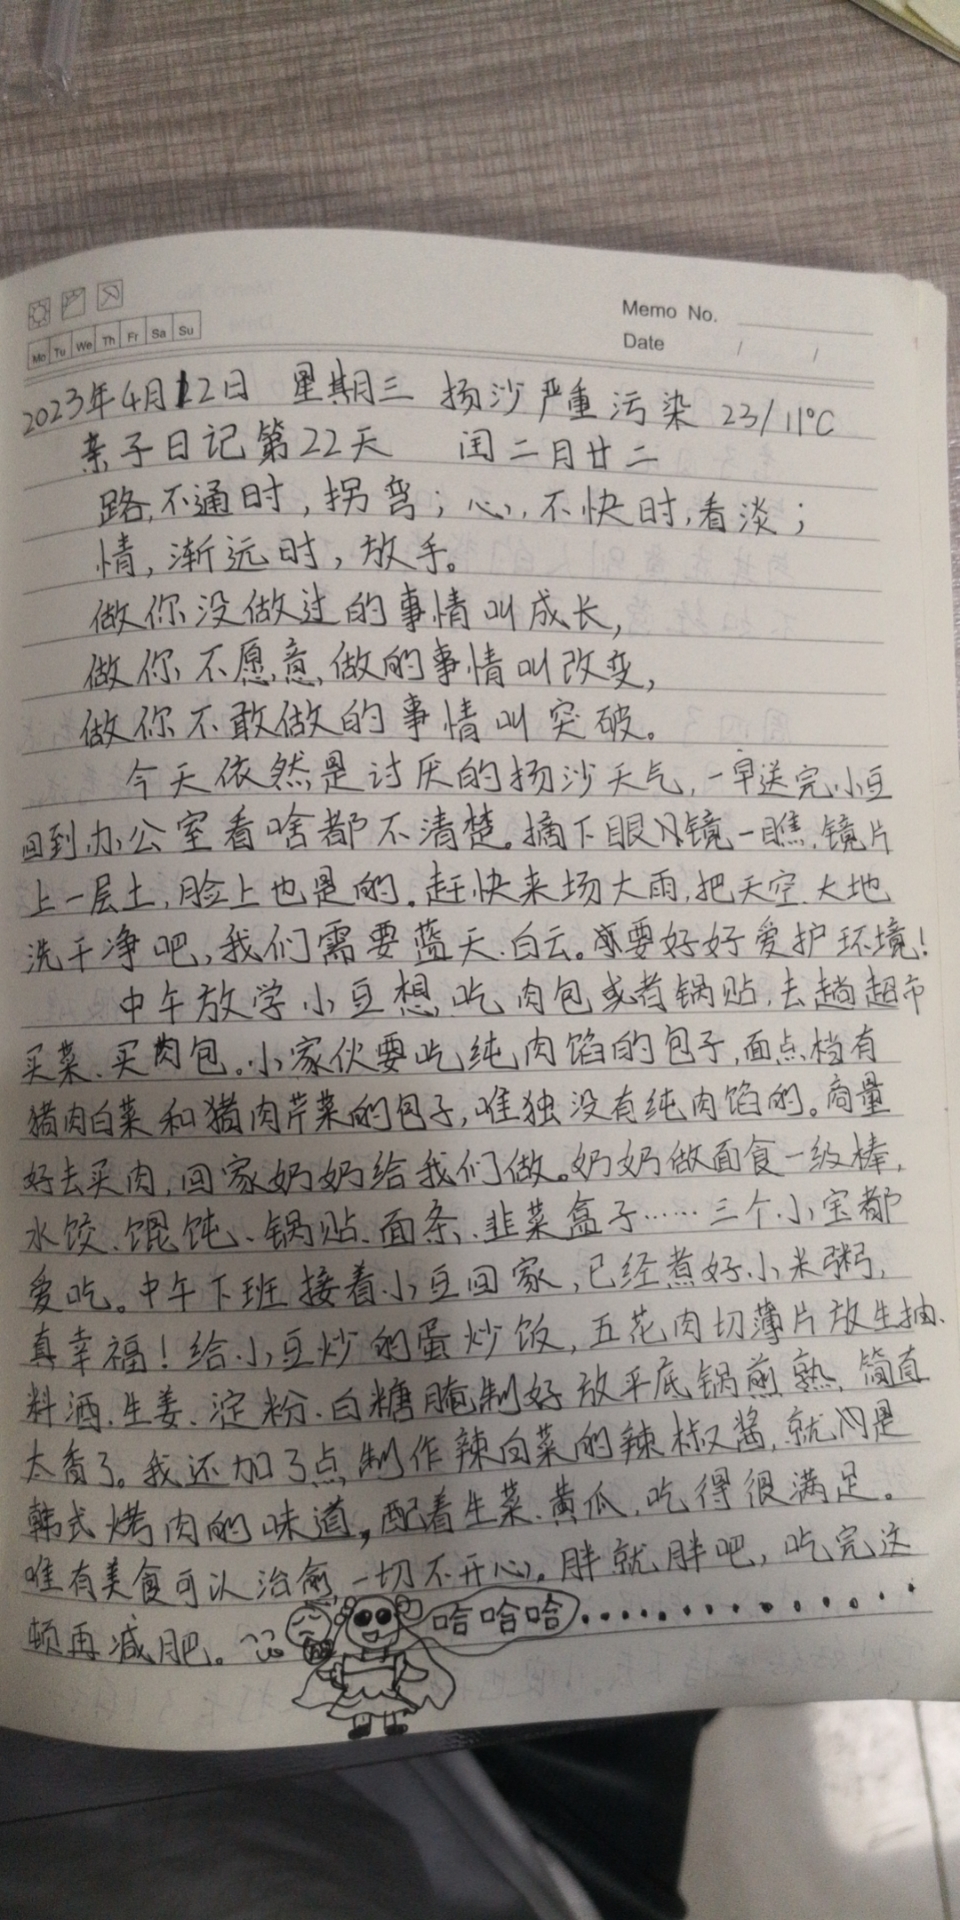 Memo No.
Date / /
Mo Tu We Th Fr Sa Su
2023年4月12日 星期三 扬沙严重污染 23/11℃
亲子日记第22天 闰二月廿二
路,不通时,拐弯;心,不快时,看淡;
情,渐远时,放手。
做你没做过的事情叫成长,
做你不愿意做的事情叫改变,
做你不敢做的事情叫突破。
今天依然是讨厌的扬沙天气,一早送完小豆
回到办公室看啥都不清楚。摘下眼镜一瞧,镜片
上一层土,脸上也是的。赶快来场大雨,把天空、大地
洗干净吧,我们需要蓝天、白云。要好好爱护环境!
中午放学小豆想吃肉包或者锅贴,去趟超市
买菜、买肉包。小家伙要吃纯肉馅的包子,面点档有
猪肉白菜和猪肉芹菜的包子,唯独没有纯肉馅的。商量
好去买肉,回家奶奶给我们做。奶奶做面食一级棒,
水饺、馄饨、锅贴、面条、韭菜盒子……三个小宝都
爱吃。中午下班接着小豆回家,已经煮好小米粥,
真幸福!给小豆炒的蛋炒饭,五花肉切薄片放生抽、
料酒、生姜、淀粉、白糖腌制好放平底锅煎熟,简直
太香了。我还加了点制作辣白菜的辣椒酱,就是
韩式烤肉的味道,配着生菜、黄瓜,吃得很满足。
唯有美食可以治愈一切不开心。胖就胖吧,吃完这
顿再减肥。
哈哈哈